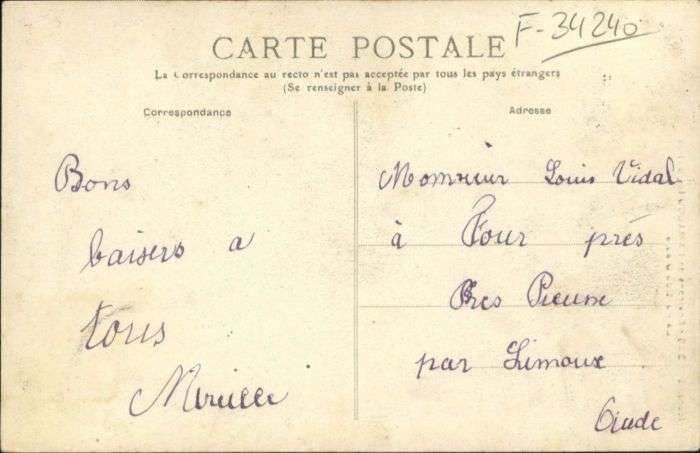 F-34240
CARTE POSTALE
La Correspondance au recto n'est pas acceptée par tous les pays étrangers
(Se renseigner à la Poste)
Correspondance
Adresse
Bons
baisers a
tous
Mireille
Monsieur Louis Vidal
à Tour près
par Limoux
Aude